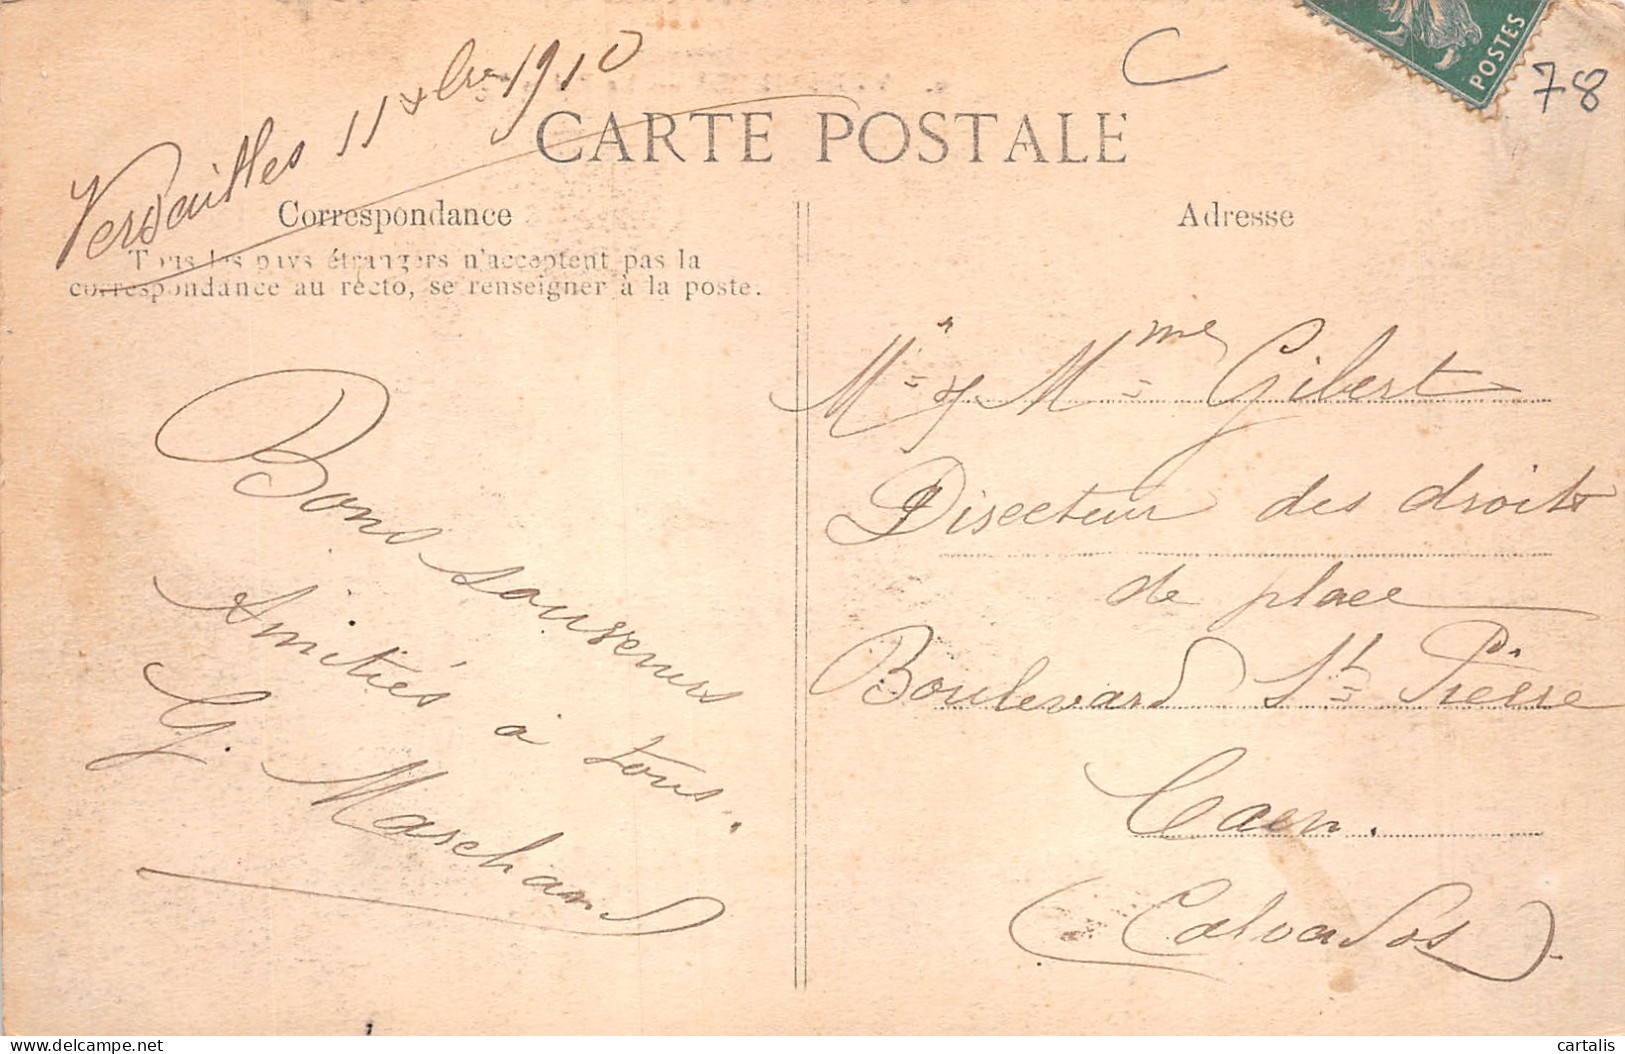 POSTES
C
78
Versailles 11 Xbre 1910
CARTE POSTALE
Correspondance
Tous les pays étrangers n'acceptent pas la
correspondance au recto, se renseigner à la poste.
Bons souvenirs
Amitiés à tous.
G. Marchand
Adresse
Mr & Mme Gibert
Directeur des droits
de place
Boulevard St Pierre
Caen.
(Calvados).
delcampe.net
cartalis